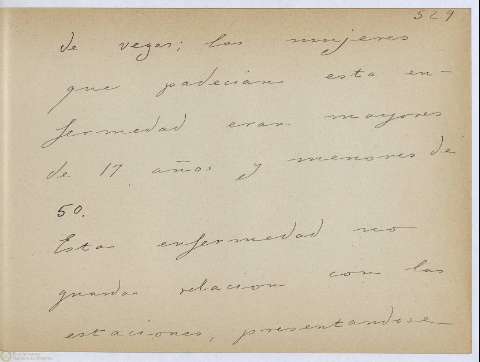 529
de vegas; las mujeres
que padecian esta en-
fermedad eran mayores
de 17 años y menores de
50.
Esta enfermedad no
guarda relacion con las
estaciones, presentandose